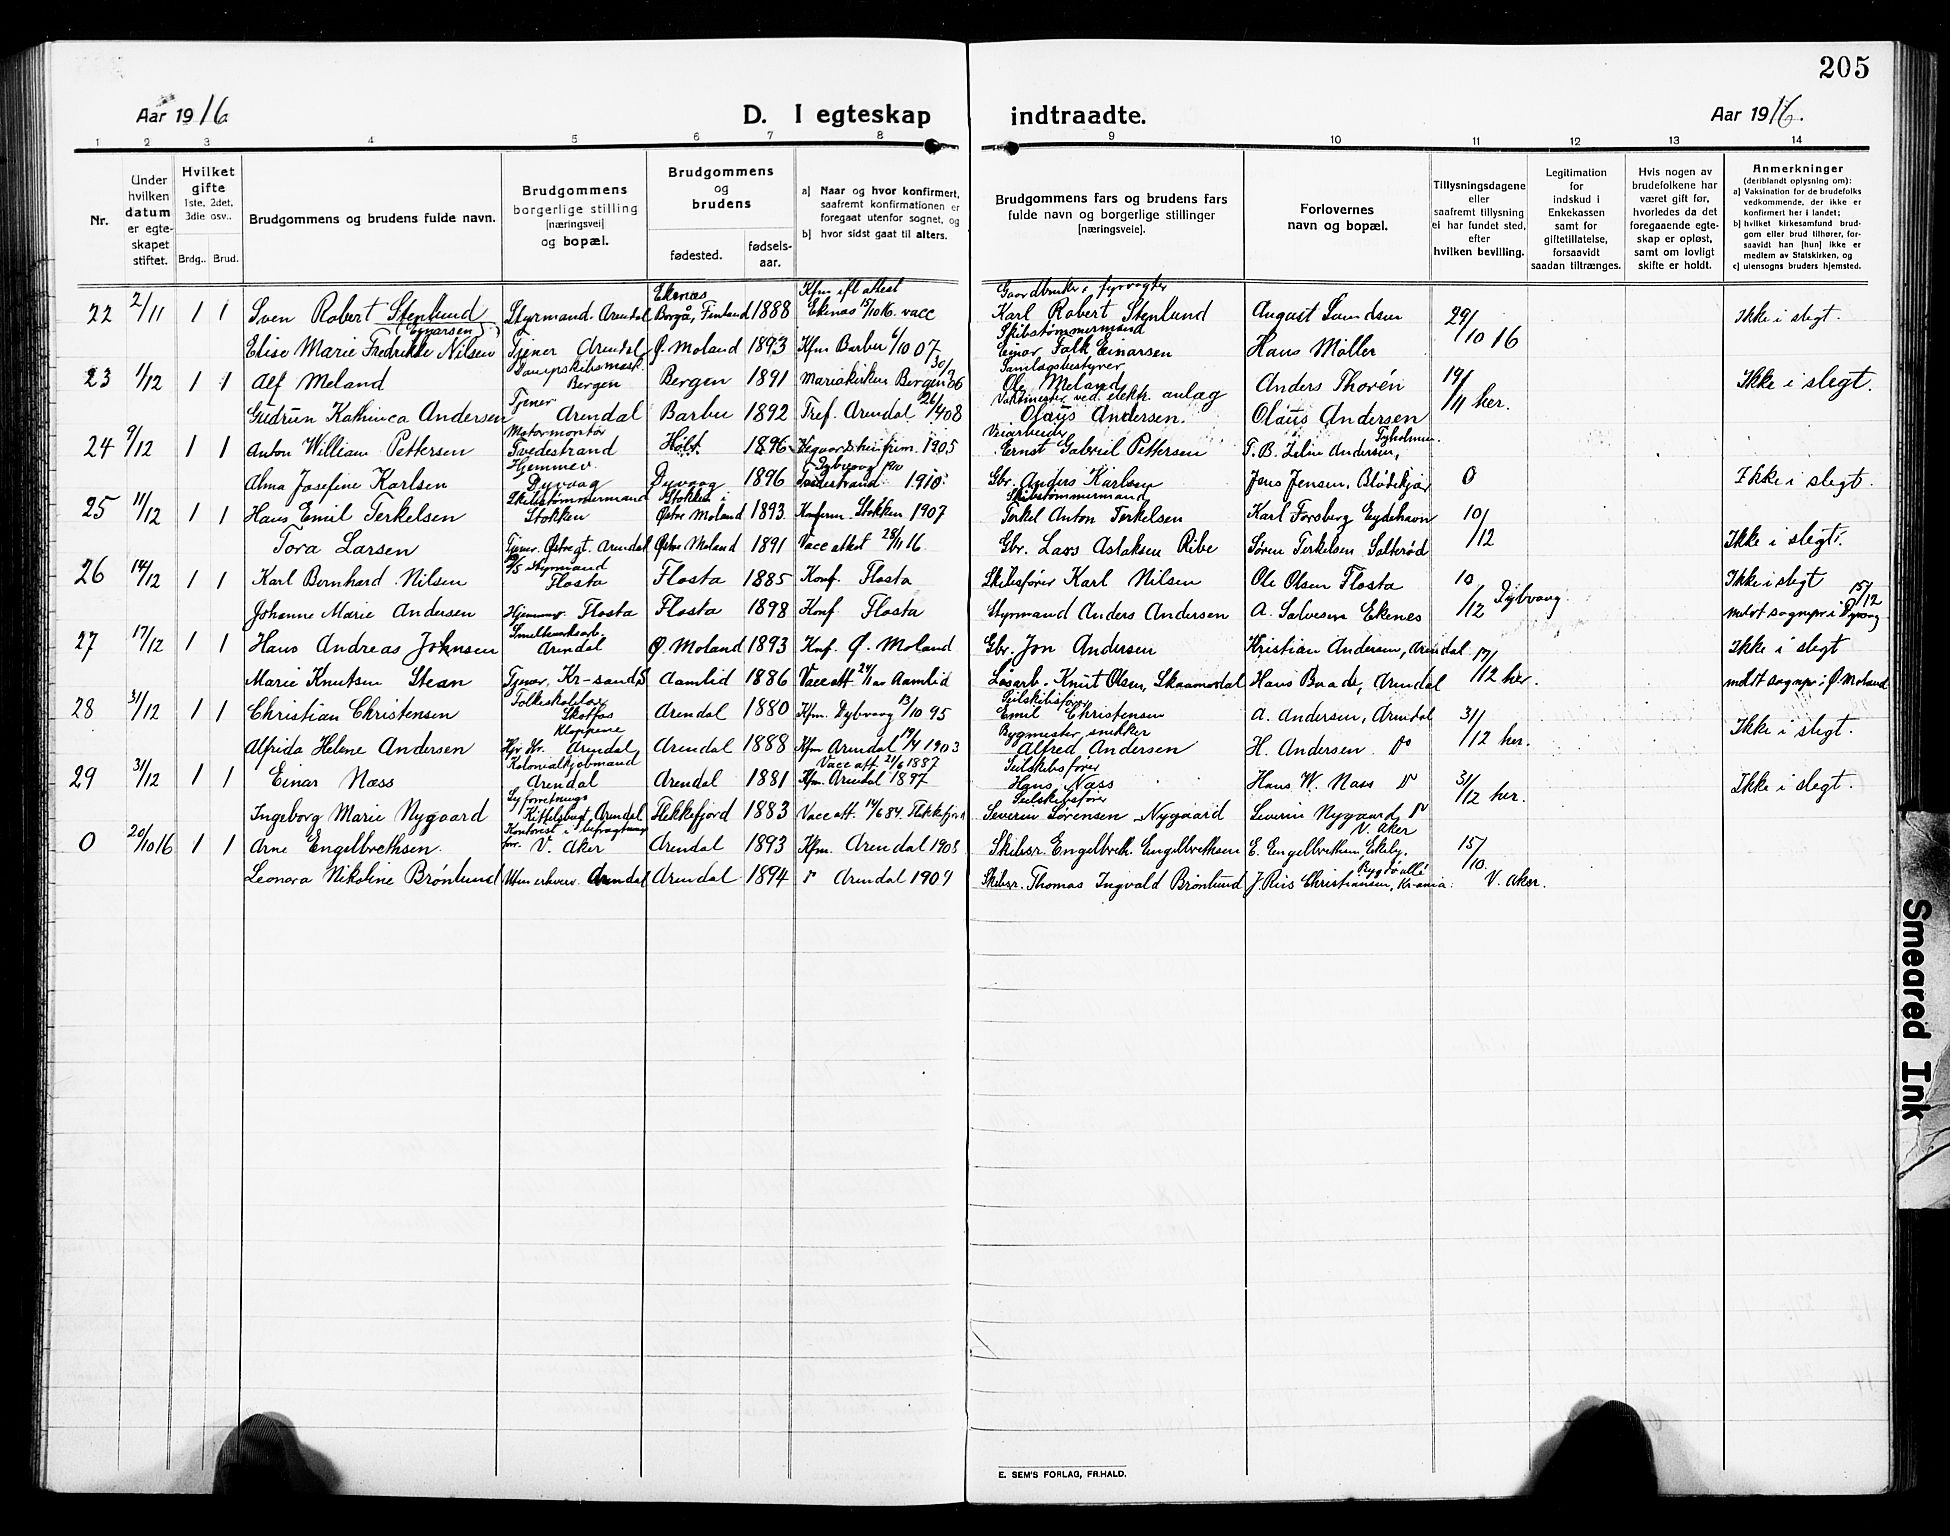 205
Aar 1916. D. I egteskap indtraadte. Aar 1916.
1 2 3 4 5 6 7 8 9 10 11 12 13 14
Nr.
Under hvilken datum er egteskapet stiftet.
Hvilket gifte 1ste, 2det, 3die osv..
Brdg.. Brud.
Brudgommens og brudens fulde navn.
Brudgommens borgerlige stilling [næringsvei] og bopæl.
Brudgommens og brudens
fødested. fødsels-aar.
a] Naar og hvor konfirmert, saafremt konfirmationen er foregaat utenfor sognet, og
b] hvor sidst gaat til alters.
Brudgommens fars og brudens fars fulde navn og borgerlige stillinger [næringsveie].
Forlovernes navn og bopæl.
Tillysningsdagene eller saafremt tillysning ei har fundet sted, efter hvilken bevilling.
Legitimation for indskud i Enkekassen samt for giftetillatelse, forsaavidt saadan tiltrænges.
Hvis nogen av brudefolkene har været gift før, hvorledes da det foregaaende egteskap er opløst, samt om lovligt skifte er holdt.
Anmerkninger (deriblandt oplysning om):
a] Vaksination for de brudefolks vedkommende, der ikke er konfirmert her i landet;
b] hvilket kirkesamfund brudgom eller brud tilhører, forsaavidt han [hun] ikke er medlem av Statskirken, og
c] utensogns bruders hjemsted.
22 2/11 1 1 Sven Robert Stenlund Styrmand. Arendal Ekenæs Borgå, Finland 1888 Kfm efl attest Ekenas 15/10 16. vacc Gaardbruker, fyrvogter Karl Robert Stenlund August 29/10 16 Ikke i slegt.
Elise Marie Fredrikke Nilsen (Eynarsen) Tjener Arendal Ø. Moland 1893 Kfm Barbu 6/10 07 Skibstømmermand Einar Falk Einarsen Hans Møller
23 1/12 1 1 Alf Meland Bergen Bergen 1891 Mariakirken Bergen 30/9 06 Samlagsbestyrer Ole Meland Anders Thorén 19/11 her. Ikke i slegt.
Gudrun Kathinca Andersen Tjener Arendal Barbu 1892 Tref. Arendal 26/4 08 Vaktmester ved elektr. anlæg Olaus Andersen. Olaus Andersen
24 9/12 1 1 Anton William Pettersen Motormontør Tvedestrand Holt. 1896 1905 Veiarbeider Ernst Gabriel Pettersen Andersen, Tyholmen.
Alma Josefine Karlsen Hjemmev Dyvaag Dyvaag 1896 1910 Gbr. Anders Karlsen Jens Jensen, Blødekjær 0 Ikke i slegt.
25 11/12 1 1 Hans Emil Terkelsen Skibstømmermand Stokken Stokken i Østre Moland 1893. Konferm. Stokken 1907 Skibstømmermand Terkel Anton Terkelsen Karl Forsberg Eydehavn 10/12
Tora Larsen Tjener. Østregt. Arendal Østre Moland 1891 Vacc attest 28/11 16. Gbr. Lars Aslaksen Ribe Søren Terkelsen Salterød Ikke i slegt.
26 14/12 1 1 Karl Bernhard Nilsen D/S styrmand Flosta Flosta 1885 Konf. Flosta Skibsfører Karl Nilsen Ole Olsen Flosta 10/12 Dybvaag Ikke i slegt
Johanne Marie Andersen Hjemmev Flosta Flosta 1898 Konf. Flosta Styrmand Anders Andersen A. Salvesen Ekenes meldt sognepr i Dyvaag 15/12
27 17/12 1 1 Hans Andreas Johnsen Smelteverksarb. Arendal Ø. Moland 1893 Knf. Ø. Moland Gbr. Jon Andersen Kristian Andersen, Arendal 17/12 her. Ikke i slegt
Marie Knutsen Stean Tjener, Kr-sand S Aamlid 1886 Vacc att. Aamlid Løsarb. Knut Olsen, Hans Baade, Arendal meldt sognepr i Ø. Moland
28 31/12 1 1 Christian Christensen Folkeskolelær. Skotfos Arendal 1880 Kfm. Dybvaag 13/10 95 Seilskibsfører Emil Christensen A. Andersen, Arendal 31/12 her. Ikke i slegt.
Alfrida Helene Andersen Kloppene Arendal, Arendal 1888 Kfm Arendal 19/4 1903 Bygmester, snekker Alfred Andersen H. Andersen do
29 31/12 1 1 Einar Næss Kolonialkjøbmand Arendal Arendal 1881 Vacc att. 21/6 1887 Kfm. Arendal 1897 Seilskibsfører Hans Næss Hans W. Næss 31/12 her. Ikke i slegt.
Ingeborg Marie Nygaard Syforretnings Kittelsbugt, Arendal Flekkefjord 1883 Vacc att. 14/6 84. Flekkefjord Seilskibsfører Severin Sørensen Nygaard Severin Nygaard
0 20/10 16 1 1 Arne Engelbrethsen. Kontorist i V. Aker Arendal 1893 Kfm. Arendal 1908 Skibsr. Engelbreth Engelbrethsen E. Engelbrethsen, V. Aker 15/10. V. Aker.
Leonora Nikoline Brønlund Uten erhverv. Arendal Arendal 1894 Arendal 1909 Skibsr. Thomas Ingvald Brønlund J. Riis Christiansen, Bygdø allé Kr-ania.
E. SEM'S FORLAG, FR.HALD.
Smeared Ink